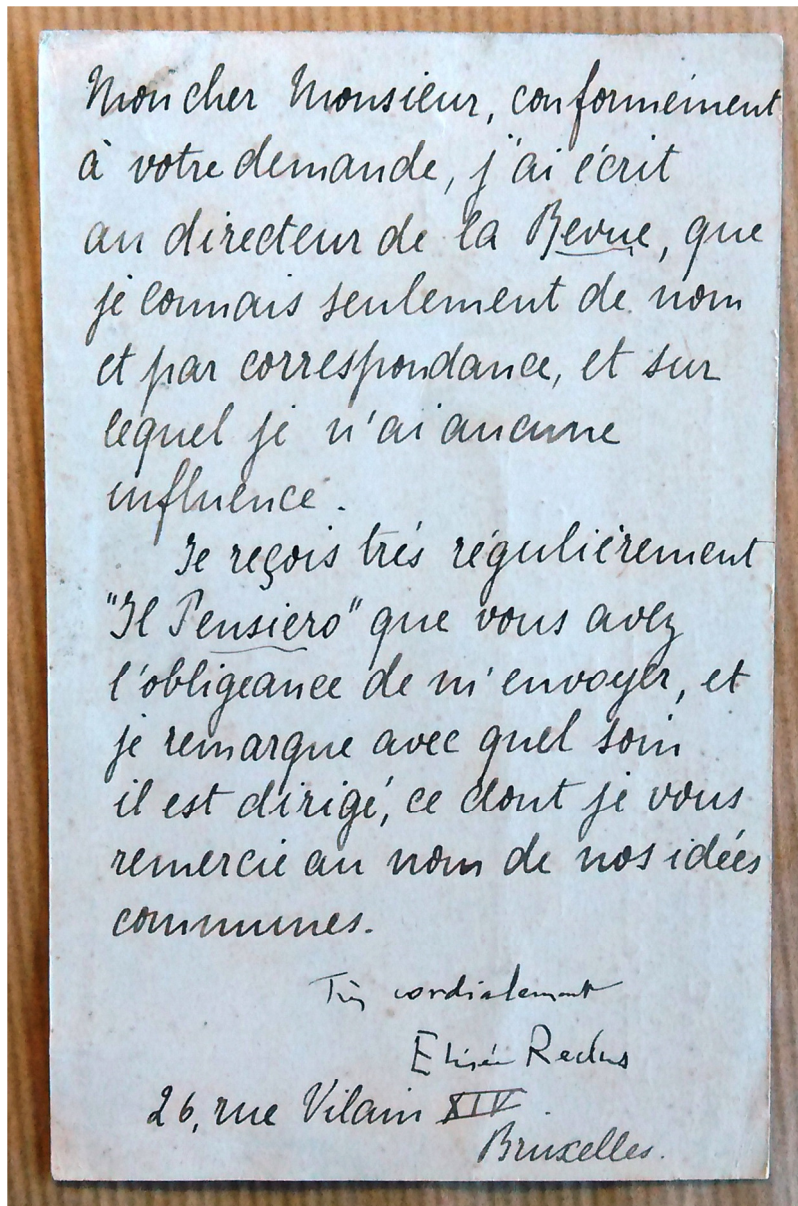 Mon cher Monsieur, conformément
à votre demande, j'ai écrit
au directeur de la Revue, que
je connais seulement de nom
et par correspondance, et sur
lequel je n'ai aucune
influence.
Je reçois très régulièrement
"Il Pensiero" que vous avez
l'obligeance de m'envoyer, et
je remarque avec quel soin
il est dirigé, ce dont je vous
remercie au nom de nos idées
communes.
Très cordialement
Elisée Reclus
26, rue Vilain XIV.
Bruxelles.